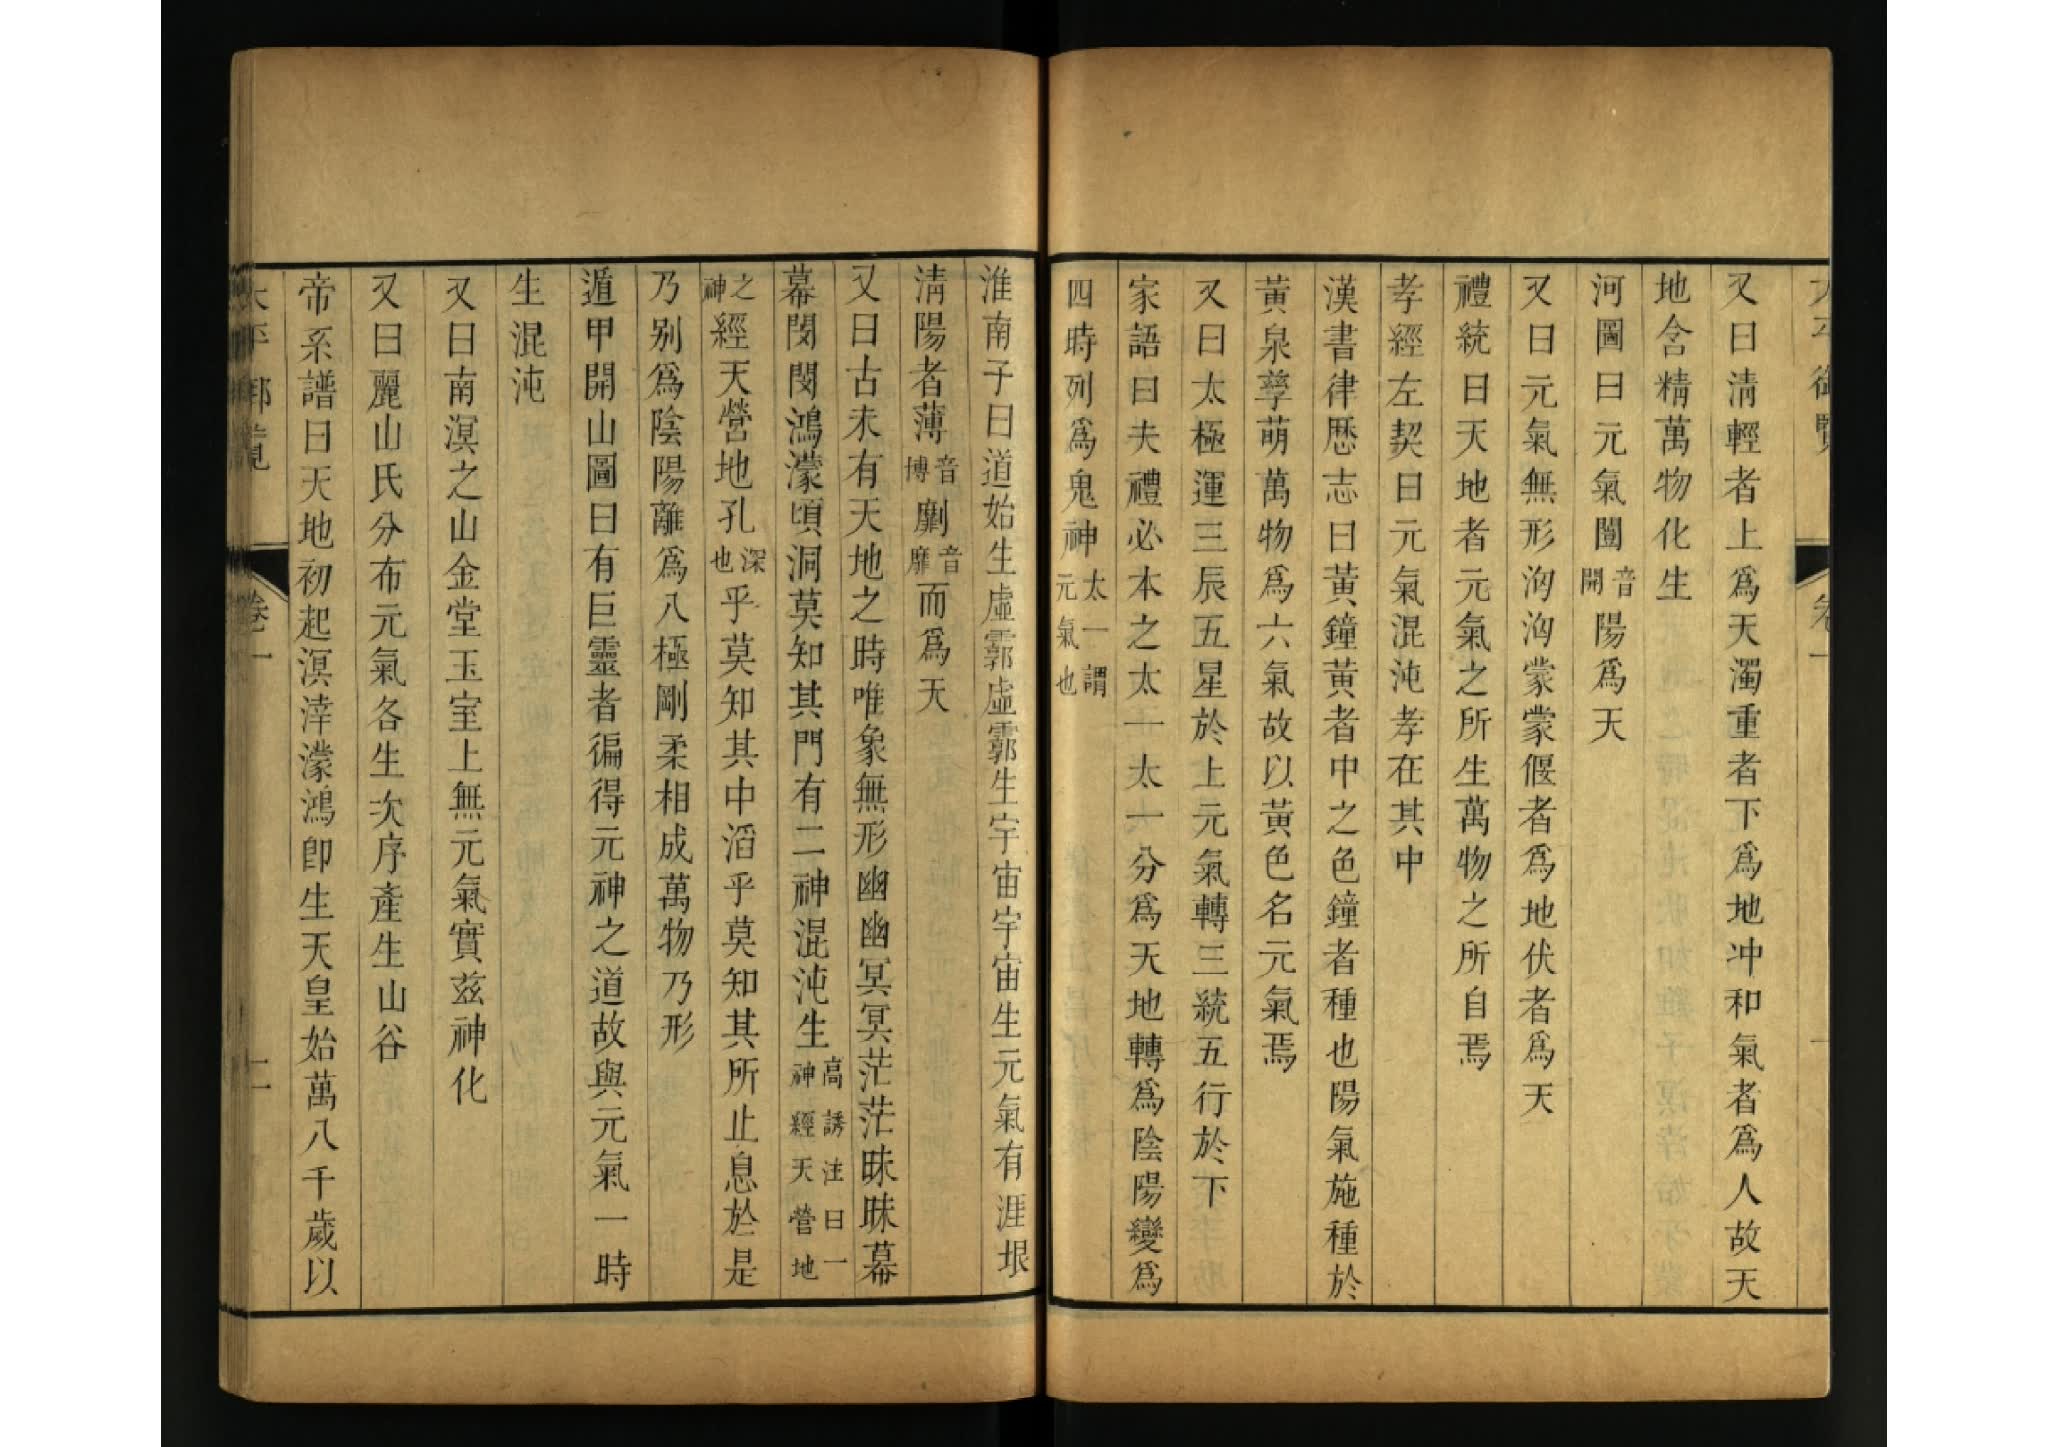 太平御覽 卷一
又曰清輕者上爲天濁重者下爲地冲和氣者爲人故天
地含精萬物化生
河圖曰元氣闓音開陽爲天
又曰元氣無形洶洶蒙蒙偃者爲地伏者爲天
禮統曰天地者元氣之所生萬物之所自焉
孝經左契曰元氣混沌孝在其中
漢書律歷志曰黃鐘黃者中之色鐘者種也陽氣施種於
黃泉孳萌萬物爲六氣故以黃色名元氣焉
又曰太極運三辰五星於上元氣轉三統五行於下
家語曰夫禮必本之太一太一分爲天地轉爲陰陽變爲
四時列爲鬼神太一謂元氣也
淮南子曰道始生虛霩虛霩生宇宙宇宙生元氣有涯垠
清陽者薄音博劘音靡而爲天
又曰古未有天地之時唯象無形幽幽冥冥茫茫昧昧幕
幕閔閔鴻濛頊洞莫知其門有二神混沌生高誘注曰一神經天營地
之神經天營地孔深也乎莫知其中滔乎莫知其所止息於是
乃別爲陰陽離爲八極剛柔相成萬物乃形
遁甲開山圖曰有巨靈者徧得元神之道故與元氣一時
生混沌
又曰南溟之山金堂玉室上無元氣實玆神化
又曰麗山氏分布元氣各生次序產生山谷
帝系譜曰天地初起溟涬濛鴻卽生天皇始萬八千歲以
太平御覽 卷一 二